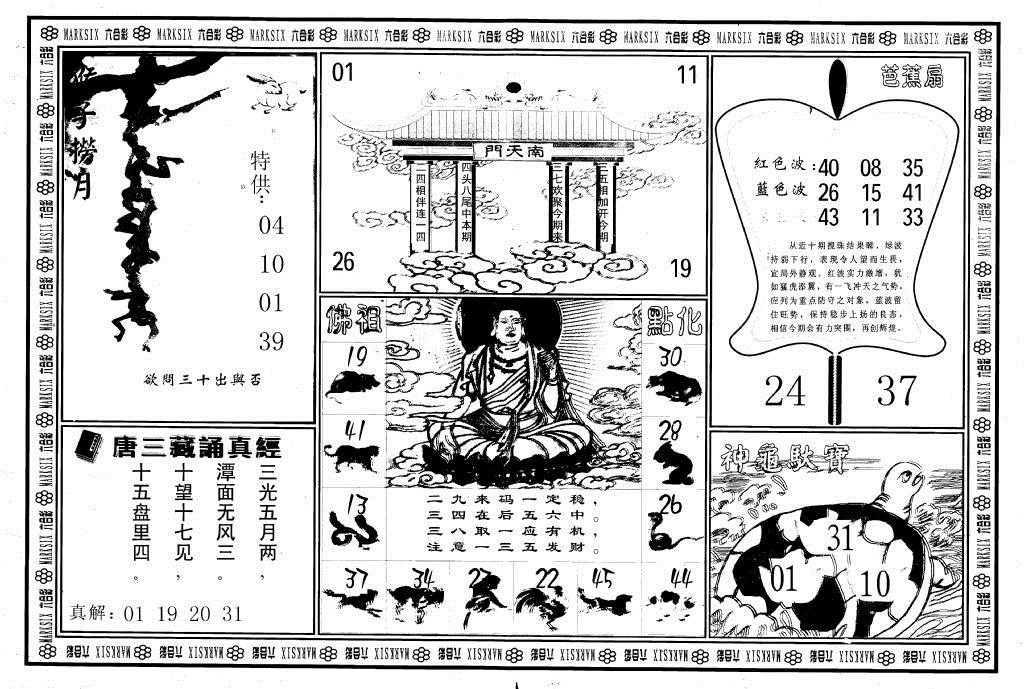 MARKSIX 六合彩 MARKSIX 六合彩 MARKSIX 六合彩 MARKSIX 六合彩 MARKSIX 六合彩 MARKSIX 六合彩 MARKSIX 六合彩 MARKSIX 六合彩 MARKSIX 六合彩 MARKSIX 六合彩
猴子撈月
特供:
04
10
01
39
欲問三十出與否
唐三藏誦真經
三光五月两,
潭面无风三。
十望十七见,
十五盘里四。
真解: 01 19 20 31
01
11
南天門
二四相伴连一四
四头八尾中本期
三七欢聚今期来
二五相加开今期
26
19
佛祖
點化
19
41
13
30
28
26
二九来码一定稳,
三四在后五六中。
三八取一应有机,
注意一三五发财。
37
34
22
45
44
芭蕉扇
紅色波: 40 08 35
藍色波 26 15 41
43 11 33
从近十期搅珠结果睇,绿波
持弱下行,表现令人望而生畏,
宜局外静观。红波实力激增,犹
如猛虎添翼,有一飞冲天之气势,
应列为重点防守之对象。蓝波留
住旺势,保持稳步上扬的良态,
相信今期会有力突围,再创辉煌。
24
37
神龜馱寶
31
01
10